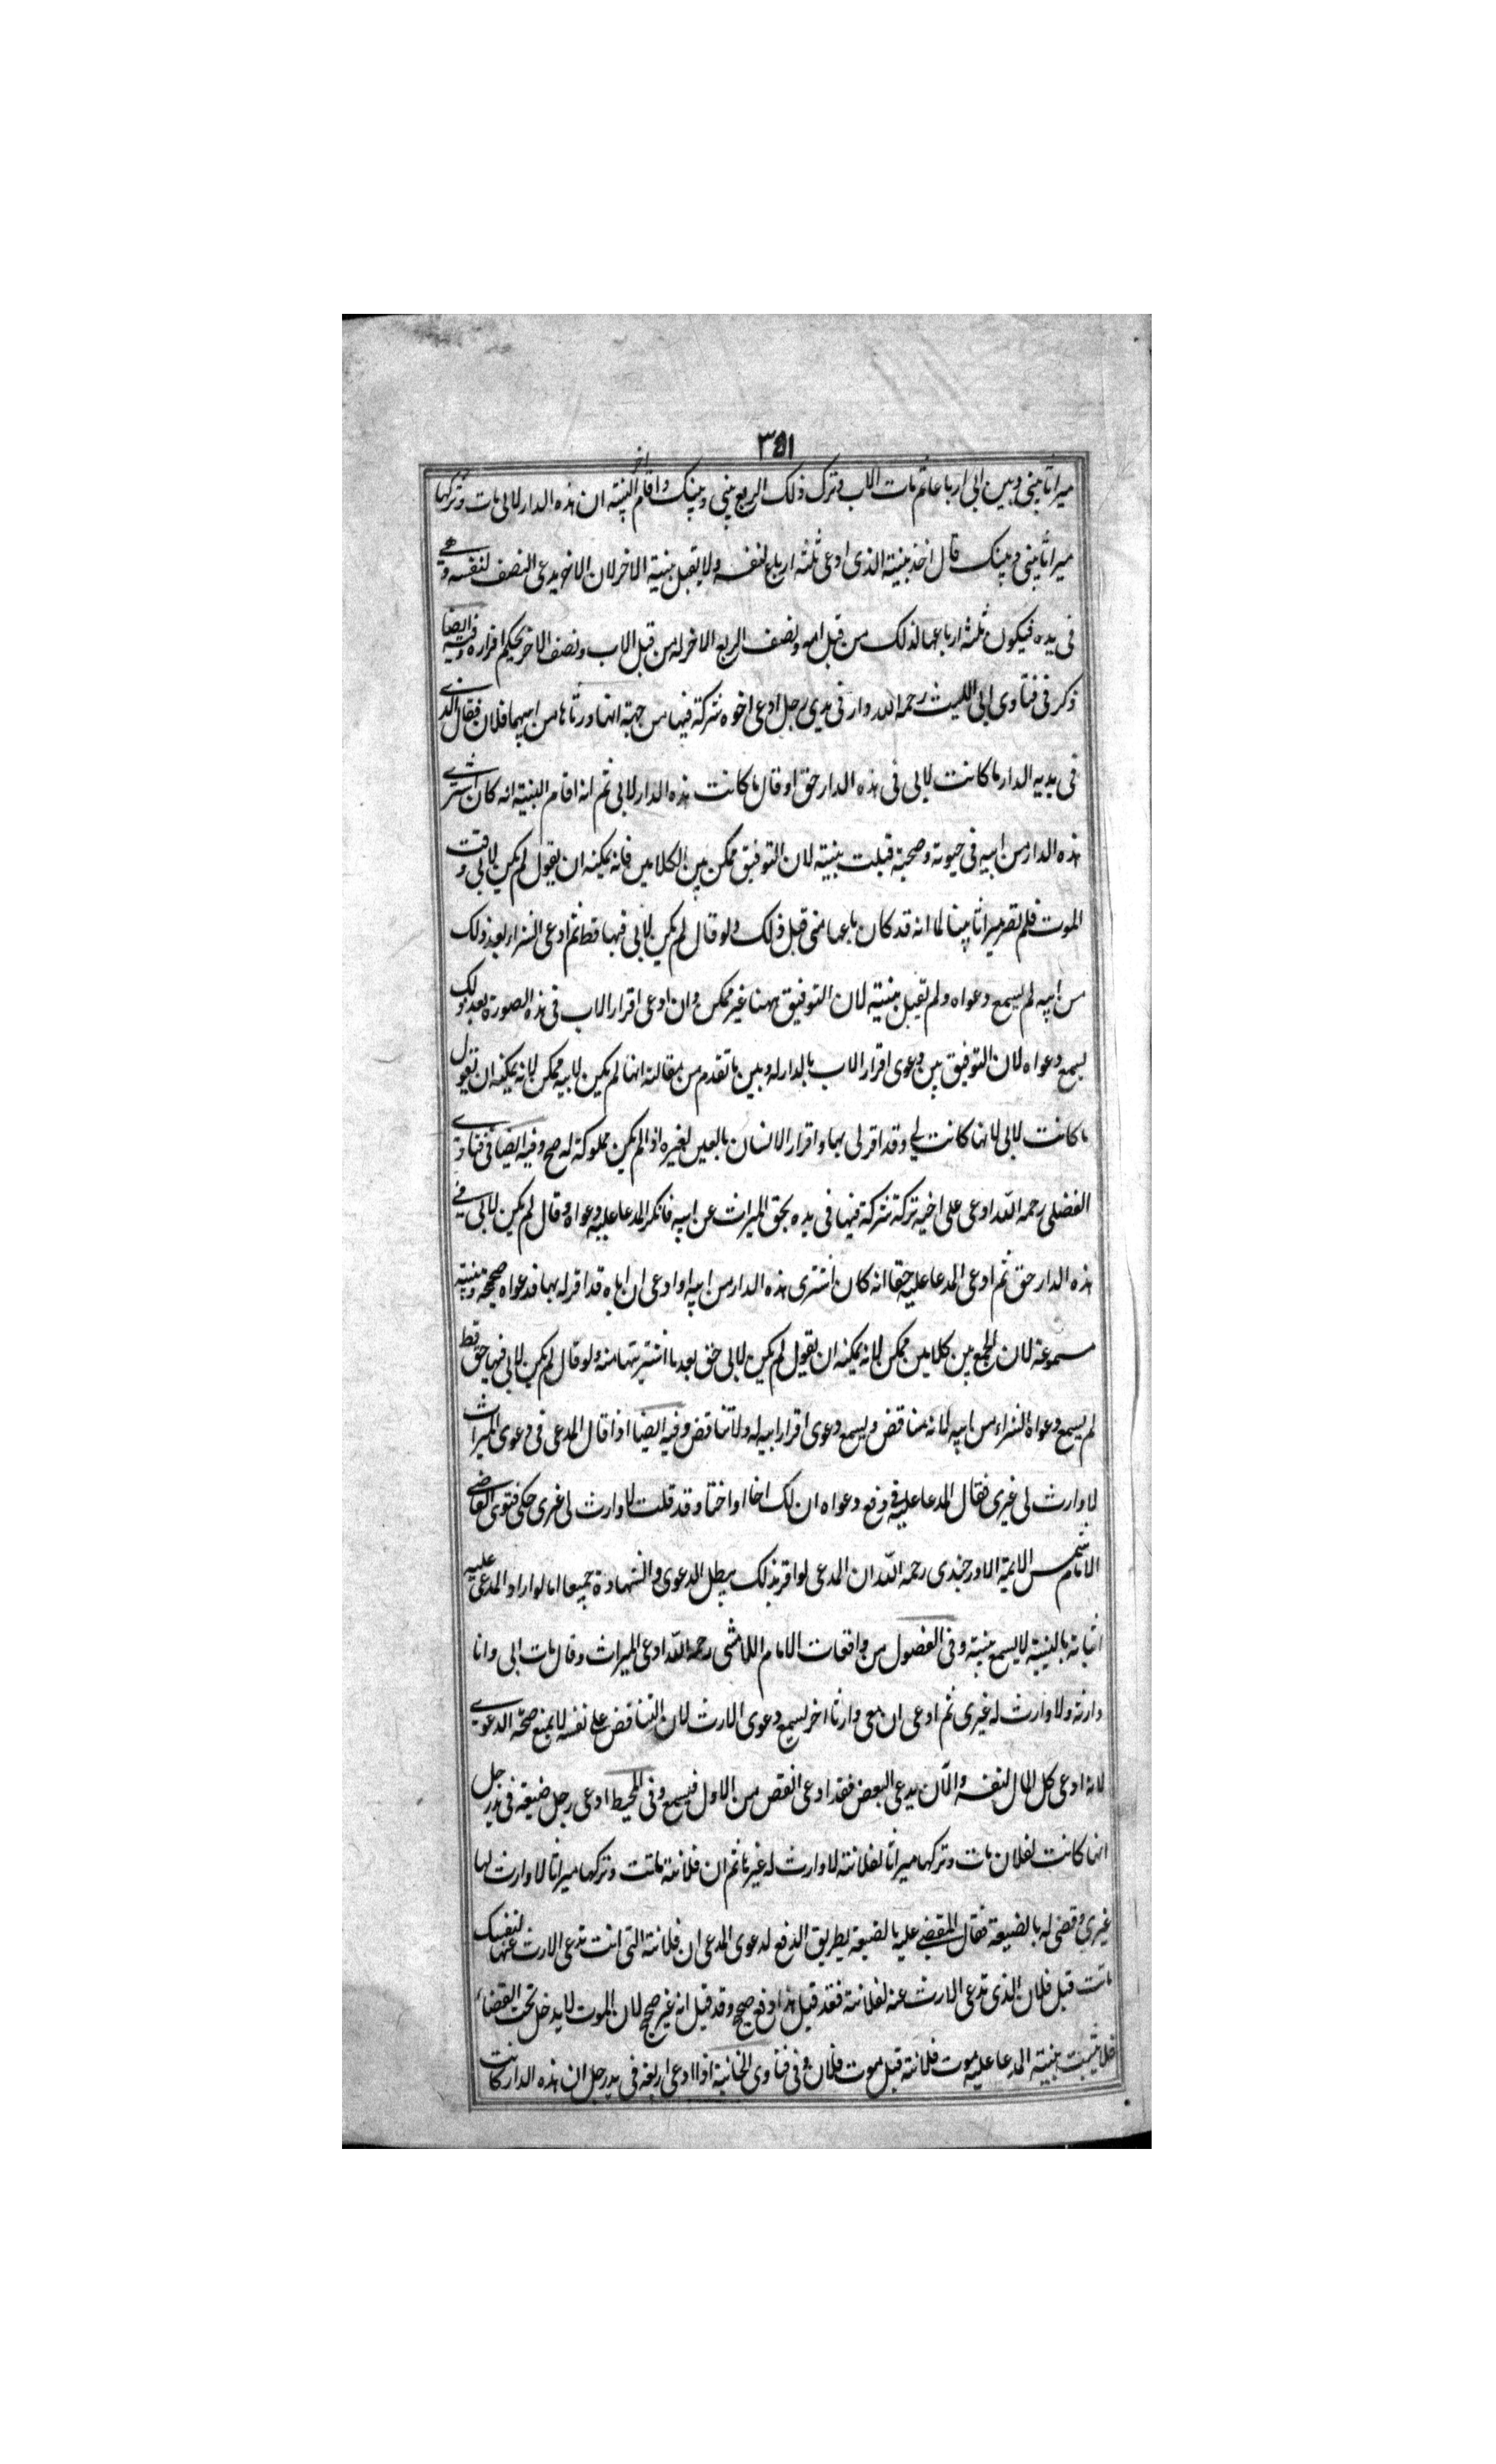 ٣٥١
ميراثا بيني وبين ابي ارباعا ثم مات الاب وترك ذلك الربع بيني وبينك واقام اخر البينة ان هذه الدار لابي مات وتركها
ميراثا بيني وبينك قال اخذ ببينة الذي ادعى ثلثة ارباع لنفسه ولا يقبل بينة الاخر لان الاخر يدعى النصف لنفسه وهي
في يده فيكون ثلثة ارباعها لذلك من قبل امه ونصف الربع الاخر له من قبل الاب ونصف الاخر بحكم اقراره وفيه ايضا
ذكر في فتاوى ابي الليث رحمه الله دار في يدي رجل ادعى اخوه شركة فيها من جهة انهما ورثاها من ابيهما فلان فقال الذي
في يديه الدار ما كانت لابي في هذه الدار حق او قال ما كانت هذه الدار لابي ثم انه اقام البينة انه كان اشترى
هذه الدار من ابيه في حيوته وصحته قبلت بينته لان التوفيق ممكن بين الكلامين فانه يمكنه ان يقول لم يكن لابي وقت
الموت فلم تصر ميراثا بيننا لما انه قد كان باعها مني قبل ذلك ولو قال لم يكن لابي فيها قط ثم ادعى الشراء بعد ذلك
من ابيه لم يسمع دعواه ولم تقبل بينته لان التوفيق ههنا غير ممكن وان ادعى اقرار الاب في هذه الصورة بعد ذلك
يسمع دعواه لان التوفيق بين دعوى اقرار الاب بالدار له وبين ما تقدم من مقالته انها لم يكن لابيه ممكن لانه يمكنه ان يقول
ما كانت لابي لانها كانت لي وقد اقر لي بها واقرار الانسان بالعين لغيره اذا لم يكن مملوكة له صح وفيه ايضا في فتاوى
الفضلي رحمه الله ادعى على اخيه تركة شركة فيها في يده بحق الميراث عن ابيه فانكر المدعا عليه دعواه وقال لم يكن لابي في
هذه الدار حق ثم ادعى المدعا عليه حقا انه كان اشترى هذه الدار من ابيه او ادعى ان اباه قد اقر له بها فدعواه صحيحة وبينته
مسموعة لان الجمع بين كلامين ممكن لانه يمكنه ان يقول لم يكن لابي حق بعد ما اشتريتها منه ولو قال لم يكن لابي فيها حق قط
لم يسمع دعواه الشراء من ابيه لانه مناقض ويسمع دعوى اقرار ابيه له ولا تناقض وفيه ايضا اذا قال المدعي في دعوى الميراث
لا وارث لي غيري فقال المدعا عليه في دفع دعواه ان لك اخا او اختا وقد قلت لا وارث لي غيري حكى فتوى القاضي
الامام شمس الايمة الاوزجندي رحمه الله ان المدعي لو اقر بذلك يبطل الدعوى والشهادة جميعا اما لو اراد المدعى عليه
اثباته بالبينة لا يسمع بينته وفي الفصول من واقعات الامام اللامشي رحمه الله ادعى الميراث وقال مات ابي وانا
وارثه ولا وارث له غيري ثم ادعى ان معي وارثا اخر يسمع دعوى الارث لان التناقض على نفسه لا يمنع صحة الدعوى
لانه ادعى كل المال لنفسه والآن يدعي البعض فقد ادعى انقص من الاول فيسمع وفي المحيط ادعى رجل ضيعة في يد رجل
انها كانت لفلان مات وتركها ميراثا لفلانة لا وارث له غيرها ثم ان فلانة ماتت وتركها ميراثا لا وارث لها
غيري وقضى له بالضيعة فقال المقضي عليه بالضيعة بطريق الدفع لدعوى المدعي ان فلانة التي انت تدعى الارث عنها لنفسك
ماتت قبل فلان الذي تدعى الارث عنه لفلانة فقد قيل هذا دفع صحيح وقد قيل انه غير صحيح لان الموت لا يدخل تحت القضاء
فلا يثبت ببينة المدعا عليه موت فلانة قبل موت فلان وفي فتاوى الخانية اذا ادعى اربعة في يد رجل ان هذه الدار كانت